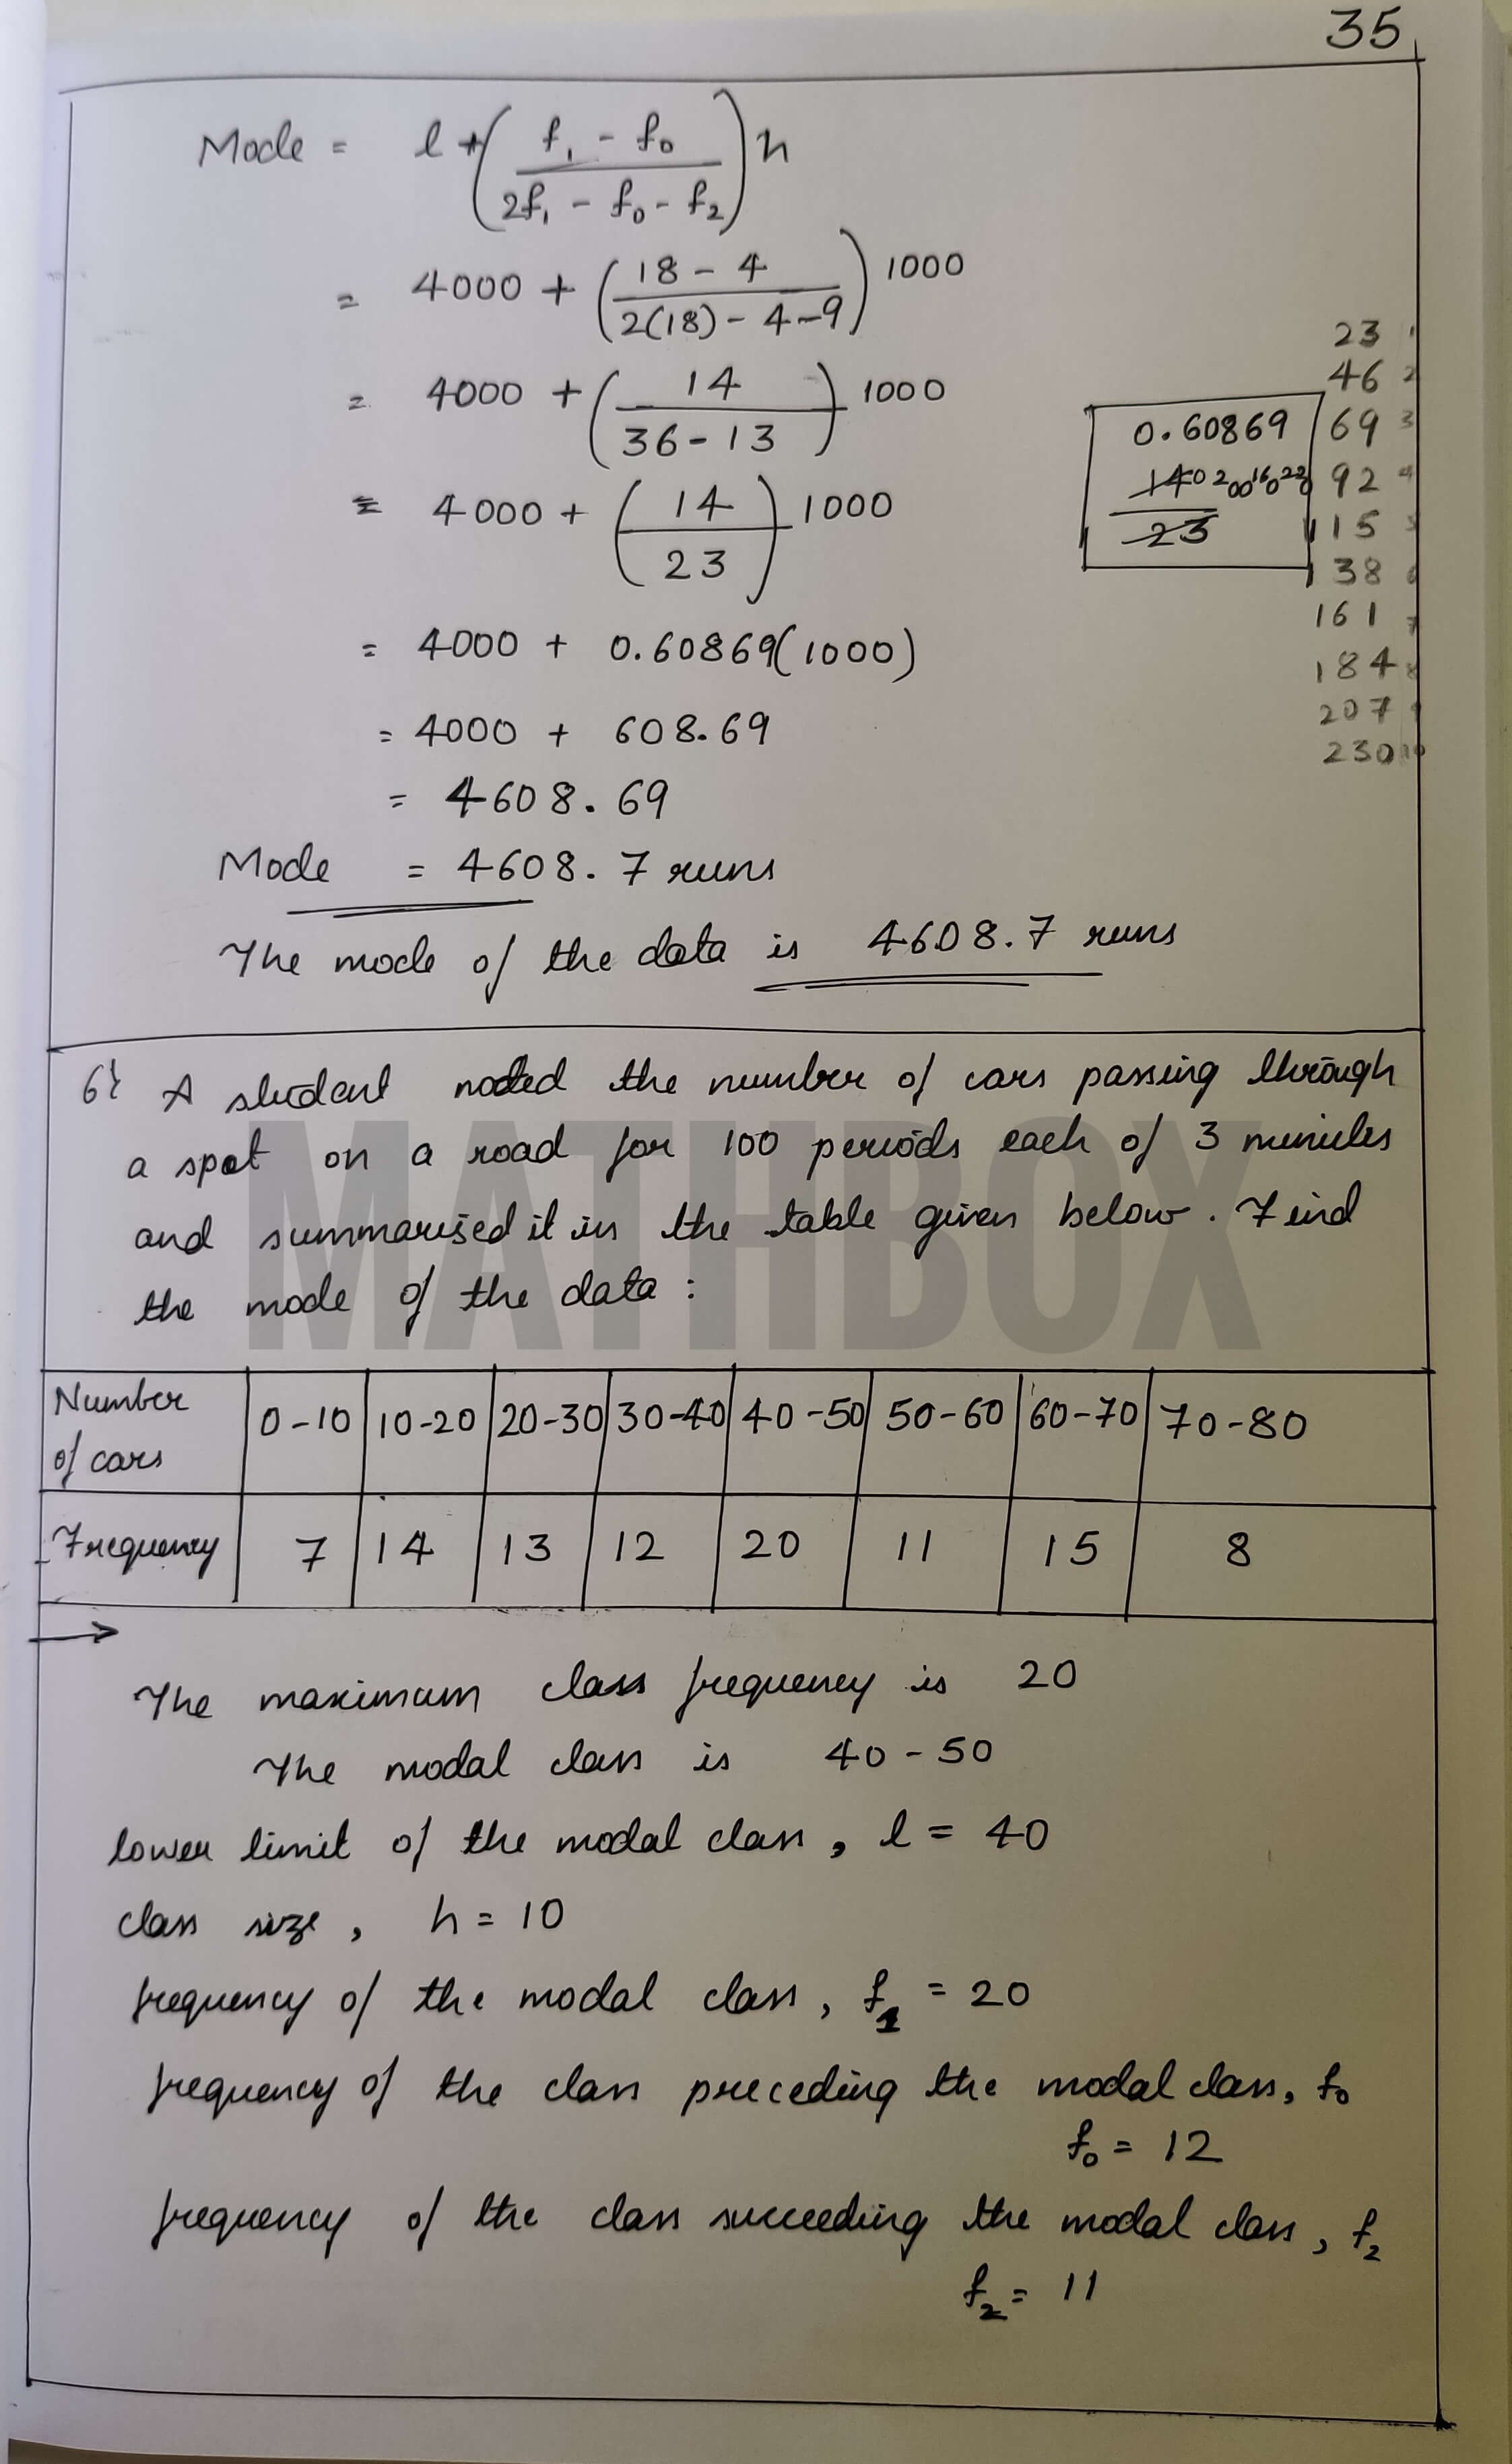 35
Mode = l + ( f₁ - f₀ / 2f₁ - f₀ - f₂ ) h
= 4000 + ( 18 - 4 / 2(18) - 4 - 9 ) 1000
= 4000 + ( 14 / 36 - 13 ) 1000
= 4000 + ( 14 / 23 ) 1000
= 4000 + 0.60869(1000)
= 4000 + 608.69
= 4608.69
Mode = 4608.7 runs
The mode of the data is 4608.7 runs
0.60869
140 200 160 220
23
23 1
46 2
69 3
92 4
115 5
138 6
161 7
184 8
207 9
230 10
6} A student noted the number of cars passing through
a spot on a road for 100 periods each of 3 minutes
and summarised it in the table given below. Find
the mode of the data :
MATHBOX
Number of cars 0-10 10-20 20-30 30-40 40-50 50-60 60-70 70-80
Frequency 7 14 13 12 20 11 15 8
→
The maximum class frequency is 20
The modal class is 40-50
lower limit of the modal class, l = 40
class size, h = 10
frequency of the modal class, f₁ = 20
frequency of the class preceding the modal class, f₀
f₀ = 12
frequency of the class succeeding the modal class, f₂
f₂ = 11